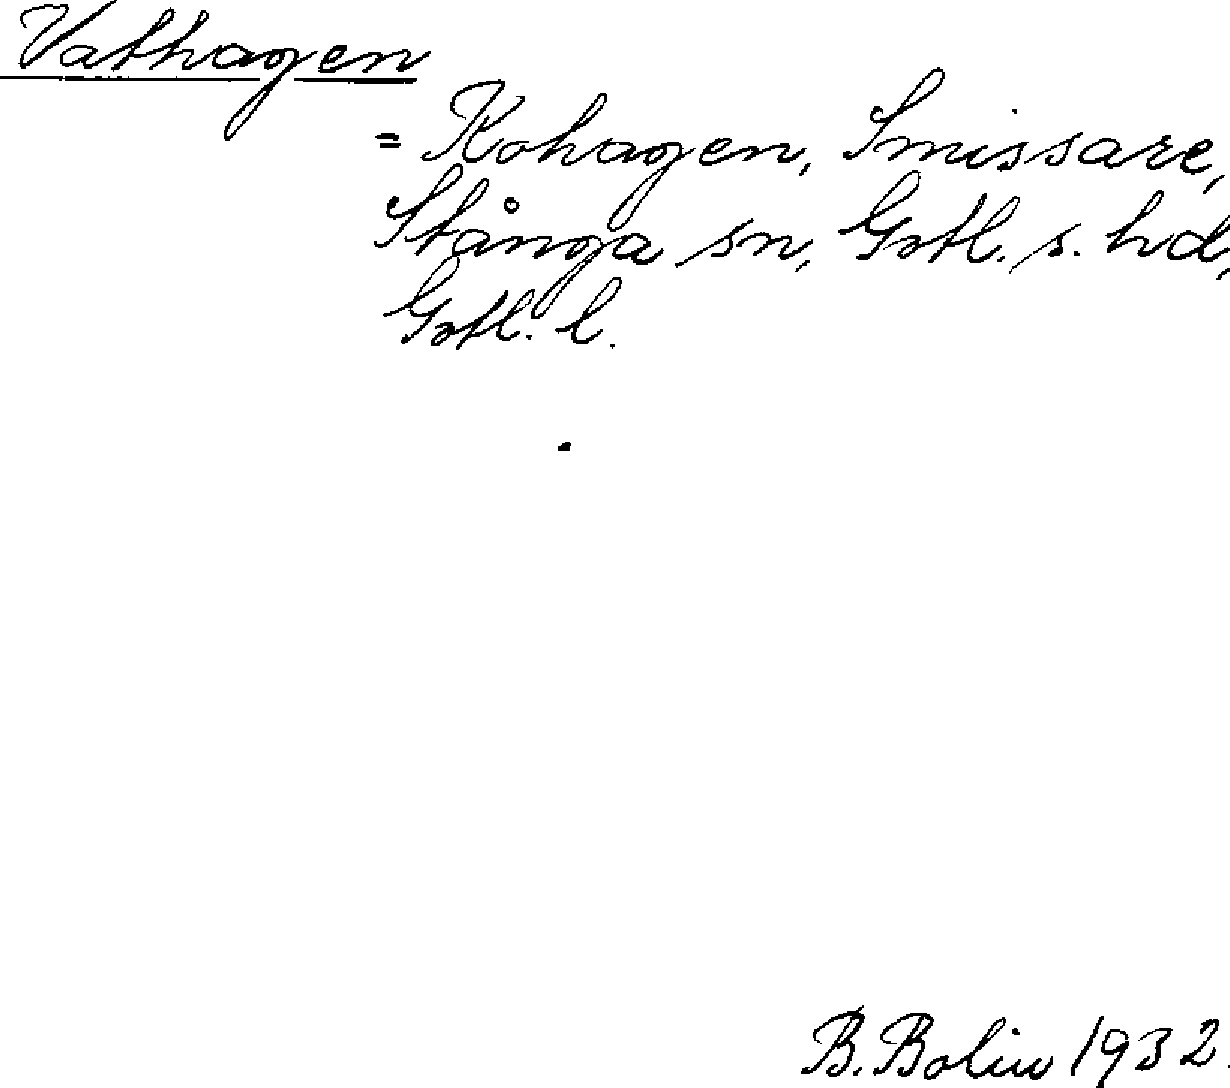 Vathagen
= Kohagen, Smissare,
Stånga sn, Gotl. s. hd,
Gotl. l.
B. Bolin 1932.